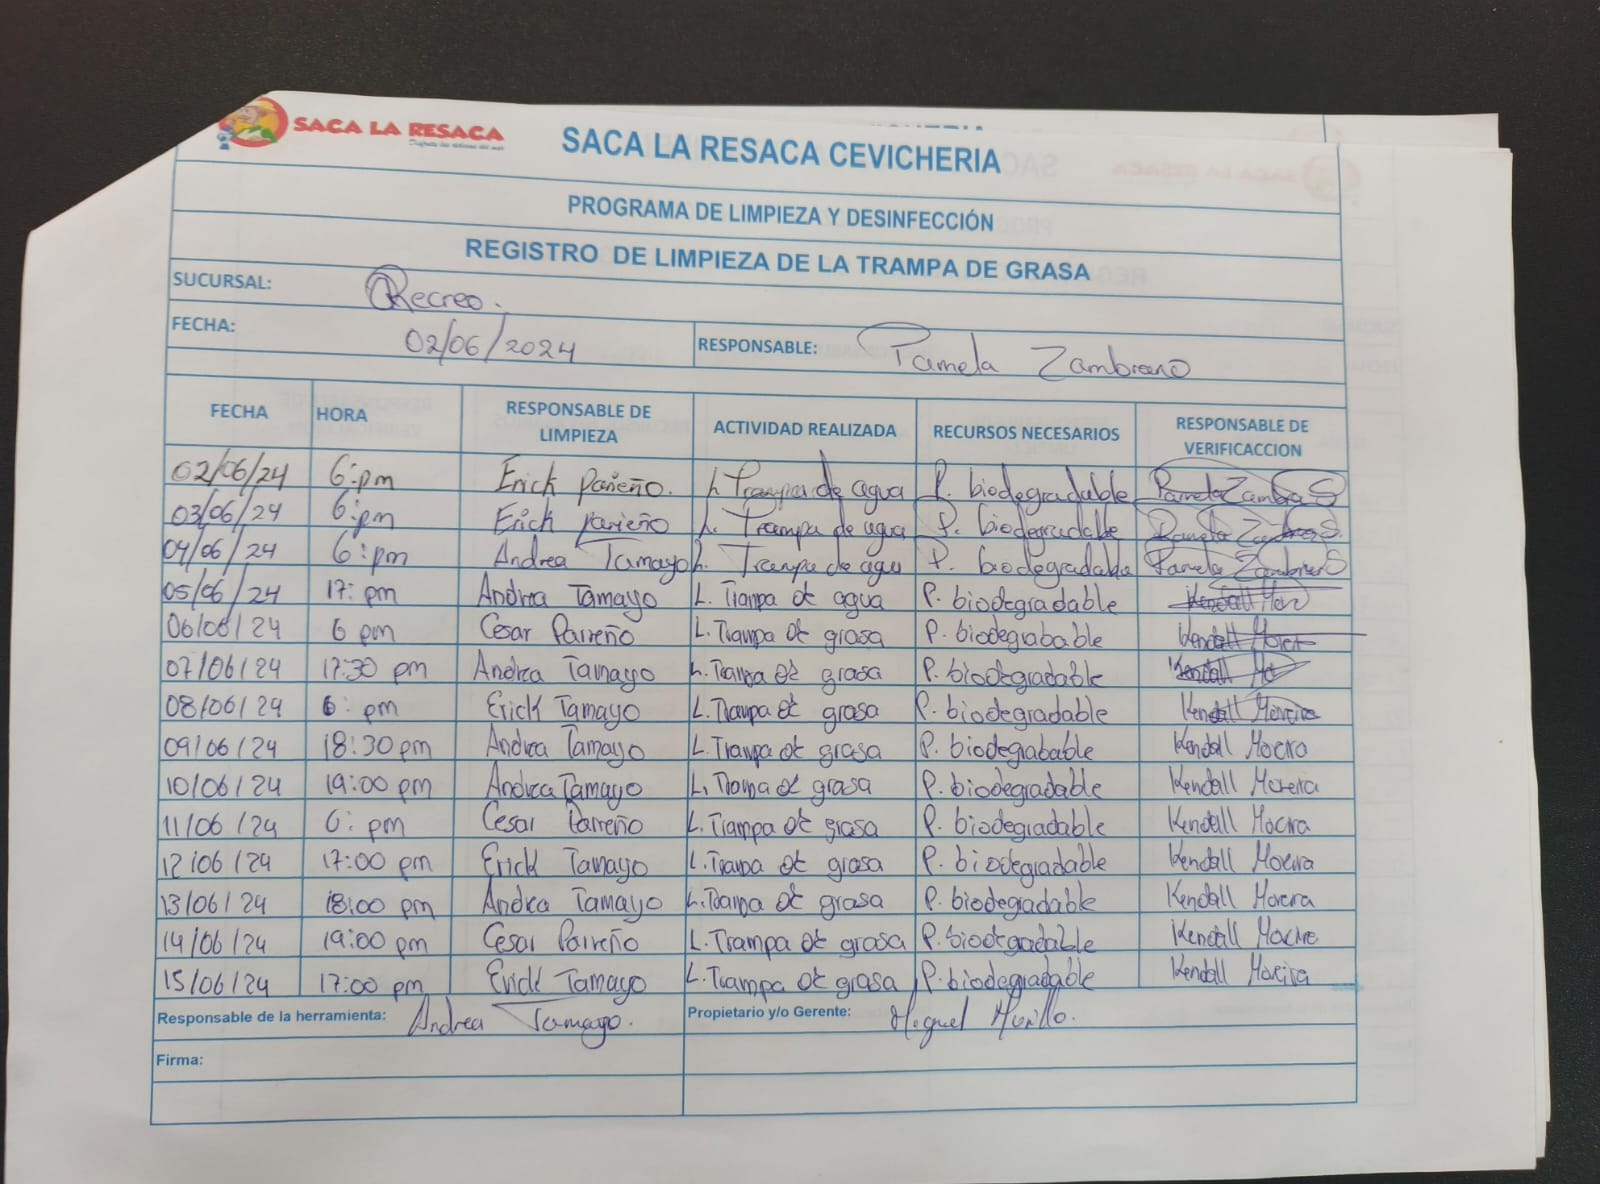 SACA LA RESACA
Disfruta las delicias del mar
SACA LA RESACA CEVICHERIA
PROGRAMA DE LIMPIEZA Y DESINFECCIÓN
REGISTRO DE LIMPIEZA DE LA TRAMPA DE GRASA
SUCURSAL: Recreo.
FECHA: 02/06/2024 RESPONSABLE: Pamela Zambrano
FECHA HORA RESPONSABLE DE LIMPIEZA ACTIVIDAD REALIZADA RECURSOS NECESARIOS RESPONSABLE DE VERIFICACCION
02/06/24 6:pm Erick Pareño. L. Trampa de agua P. biodegradable Pamela Zambra S
03/06/24 6:pm Erick pareño L. Trampa de agua P. biodegradable Pamela S.
04/06/24 6:pm Andrea Tamayo L. Trampa de agua P. biodegradable Pamela Zambrano
05/06/24 17: pm Andrea Tamayo L. Trampa de agua P. biodegradable Kendall Mor
06/06/24 6 pm Cesar Parreño L. Trampa de grasa P. biodegrabable Kendall
07/06/24 17:30 pm Andrea Tamayo L. Trampa de grasa P. biodegradable Kendall Mo
08/06/24 6: pm Erick Tamayo L. Trampa de grasa P. biodegradable Kendall Moreira
09/06/24 18:30 pm Andrea Tamayo L. Trampa de grasa P. biodegrabable Kendall Moera
10/06/24 19:00 pm Andrea Tamayo L. Trampa de grasa P. biodegradable Kendall Moreira
11/06/24 6: pm Cesar Parreño L. Trampa de grasa P. biodegradable Kendall Mocira
12/06/24 17:00 pm Erick Tamayo L. Trampa de grasa P. biodegradable Kendall Moeira
13/06/24 18:00 pm Andrea Tamayo L. Trampa de grasa P. biodegradable Kendall Morera
14/06/24 19:00 pm Cesar Parreño L. Trampa de grasa P. biodegradable Kendall
15/06/24 17:00 pm Erick Tamayo L. Trampa de grasa P. biodegradable Kendall Moreira
Responsable de la herramienta: Andrea Tamayo. Propietario y/o Gerente: Miguel Murillo.
Firma: